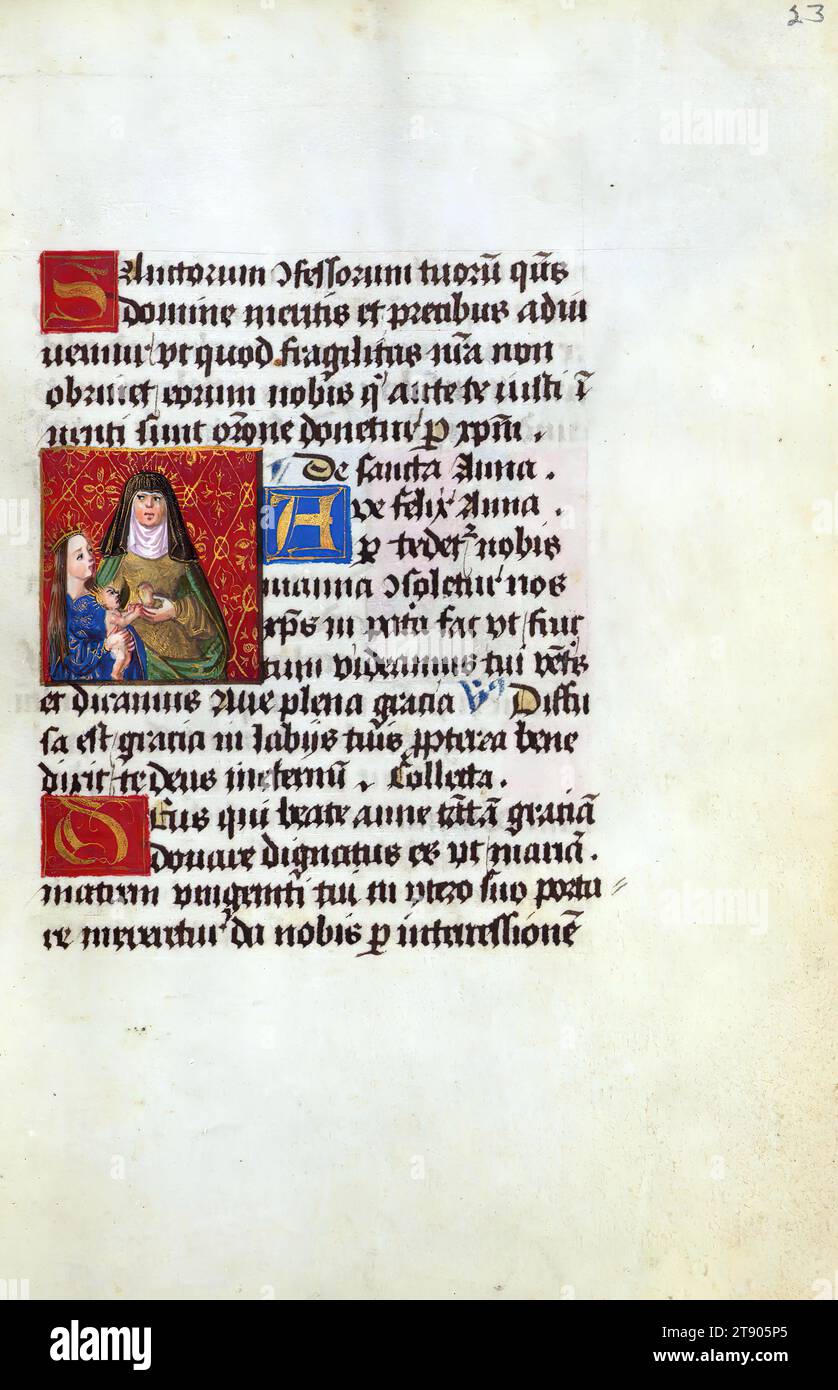 23
SAnctorum ꝯfessorum tuorū q̄us
domine meritis et precibus adiu
uemur / vt quod fragilitas nr̄a non
obtinet / eorum nobis q̄ ante te iusti ī
uenti sunt or̄one donetur ꝑ xp̄m .
De sancta Anna .
Ave felix Anna .
ꝑ te det᷑ nobis
manna ꝯsoletur nos
xp̄s in vita fac vt fruc
tum videamus tui vēt̄s
et dicamus Aue plena gracia Vs Diffu
sa est gracia in labijs tuis ꝓpterea bene
dixit te deus ineternū . Collecta .
DEus qui beate anne tātā graciā
donare dignatus es vt mariā .
matrem vnigeniti tui in vtero suo porta
re mereretur da nobis ꝑ intercessionē
alamy
Image ID: 2T905P5
www.alamy.com